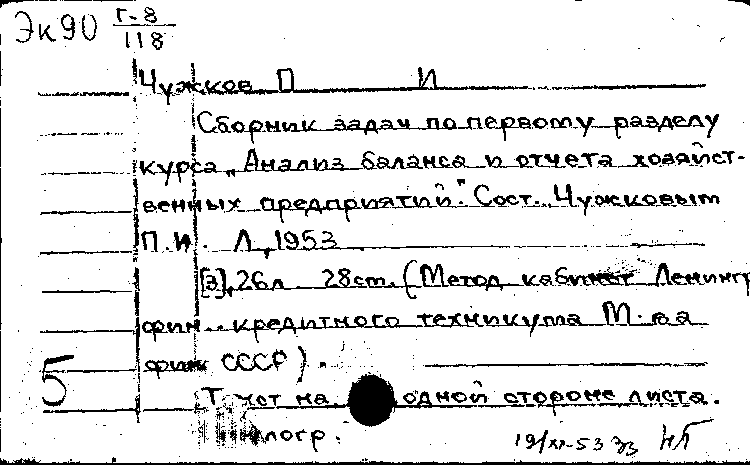 Эк90 Г-8/118
Чужков П И
Сборник задач по первому разделу
курса „Анализ баланса и отчета хозяйст-
венных предприятий". Сост. Чужковым
П.И. Л., 1953
[3], 26л 28см. (Метод кабинет Ленингр
фин.-кредитного техникума М-ва
фин СССР).
Т кст на одной стороне листа.
5
19/XI-53